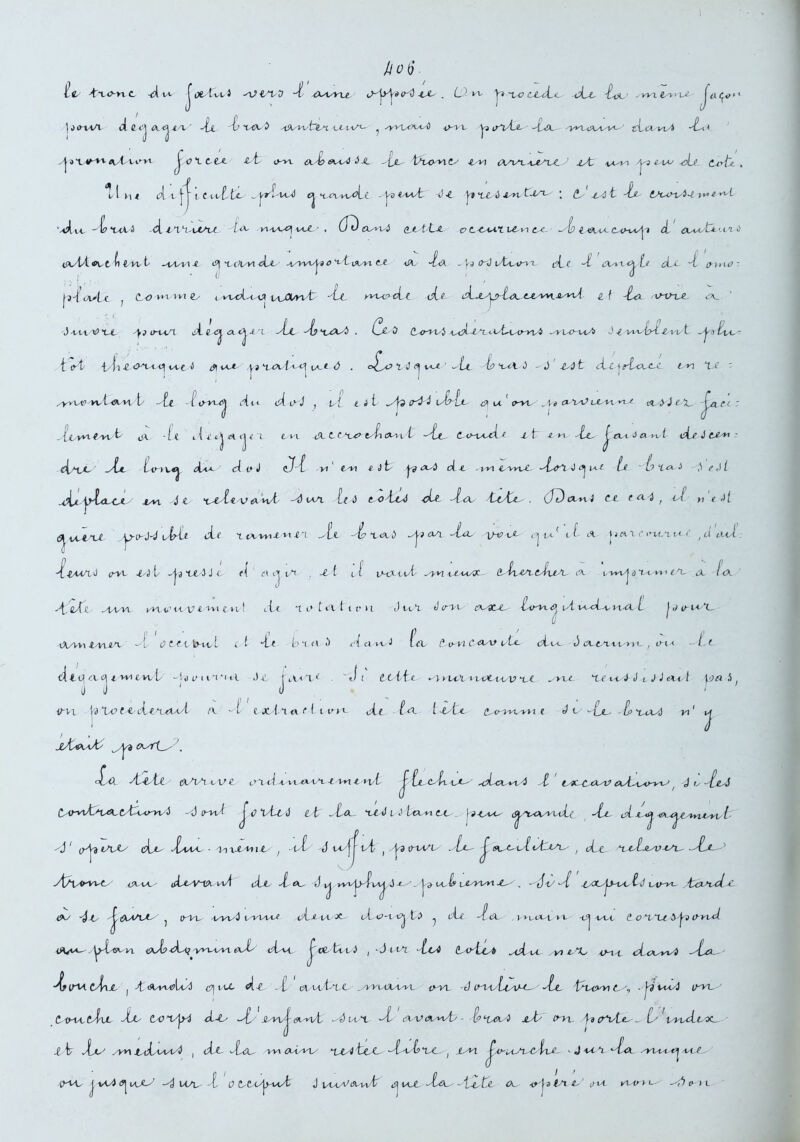 406.
le tronc du fœtus vers l'aine opposée. On procède de la même façon
pour dégager le bras antérieur, mais on porte la main dans la
pronation forcée et on abaisse le tronc en arrière et un peu de coté.
Une difficulté plus grande peut se présenter : c'est le croisement
du bras derrière la nuque. Dans cette occurrence beaucoup d'auteurs
attachent une grande importance à la position de l'angle de l'omo-
plate, comme indiquant le mode de déplacement et la voie à
suivre pour dégager le bras. Ces considérations nous semblent plu-
tôt théoriques que pratiques. Lorsque le bras s'est déplacé en re-
montant le long du dos, il est possible qu'on parvienne assez faci-
lement à le dégager en accrochant le coude et en le faisant descen-
dre le long du dos. Il n'en est pas de même lorsque le bras s'est
déplacé en se relevant sur les cotés de la tête. Dans ce cas, il n'est
guère possible de ramener le bras par la voie qu'il a parcourue, d'ail-
leurs on est pressé d'agir, et il vaut mieux chercher à imprimer à la
tête un mouvement de rotation sur son axe longitudinal pour
amener l'occiput et le bras dans la concavité du sacrum, où le
dégagement pourra se faire. Si cette manœuvre ne réussissait pas,
on procéderait à l'extraction de la tête comme si le bras n'y
était pas.
La tête arrive ordinairement fléchie dans l'excavation, si les
contractions sont fortes et la résistance peu grande le dégagement
s'opère de lui-même, il suffit, pour le faciliter, de relever le
tronc au devant de la symphyse pubienne. Si l'expulsion tarde
à se faire, on insinue deux doigts, de la main qui correspond
au plan abdominal du fœtus, sur les cotés du nez ou dans la
bouche, tandis que de l'autre main on soulève le tronc, puis on
couche le corps de l'enfant sur l'avant-bras et on porte l'index
et le médius, de la main restée libre, en fourche sur la nuque
ou jusque sur l'occiput suivant que la tête a opéré ou non son